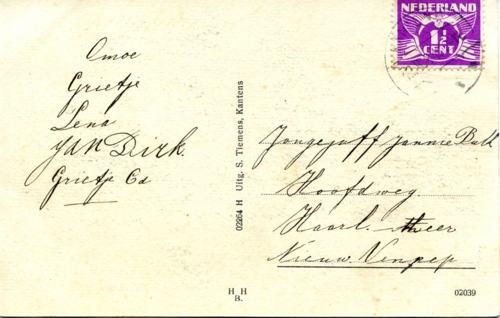 Omoe
Grietje
Lena
JAN Dirk.
Grietje Cd
02264 H Uitg. S. Tiemens, Kantens
H H
B.
NEDERLAND
1½
CENT
Jongejuff Jannie Bulk
Hoofdweg
Haarl. Meer
Nieuw. Vennep
02039